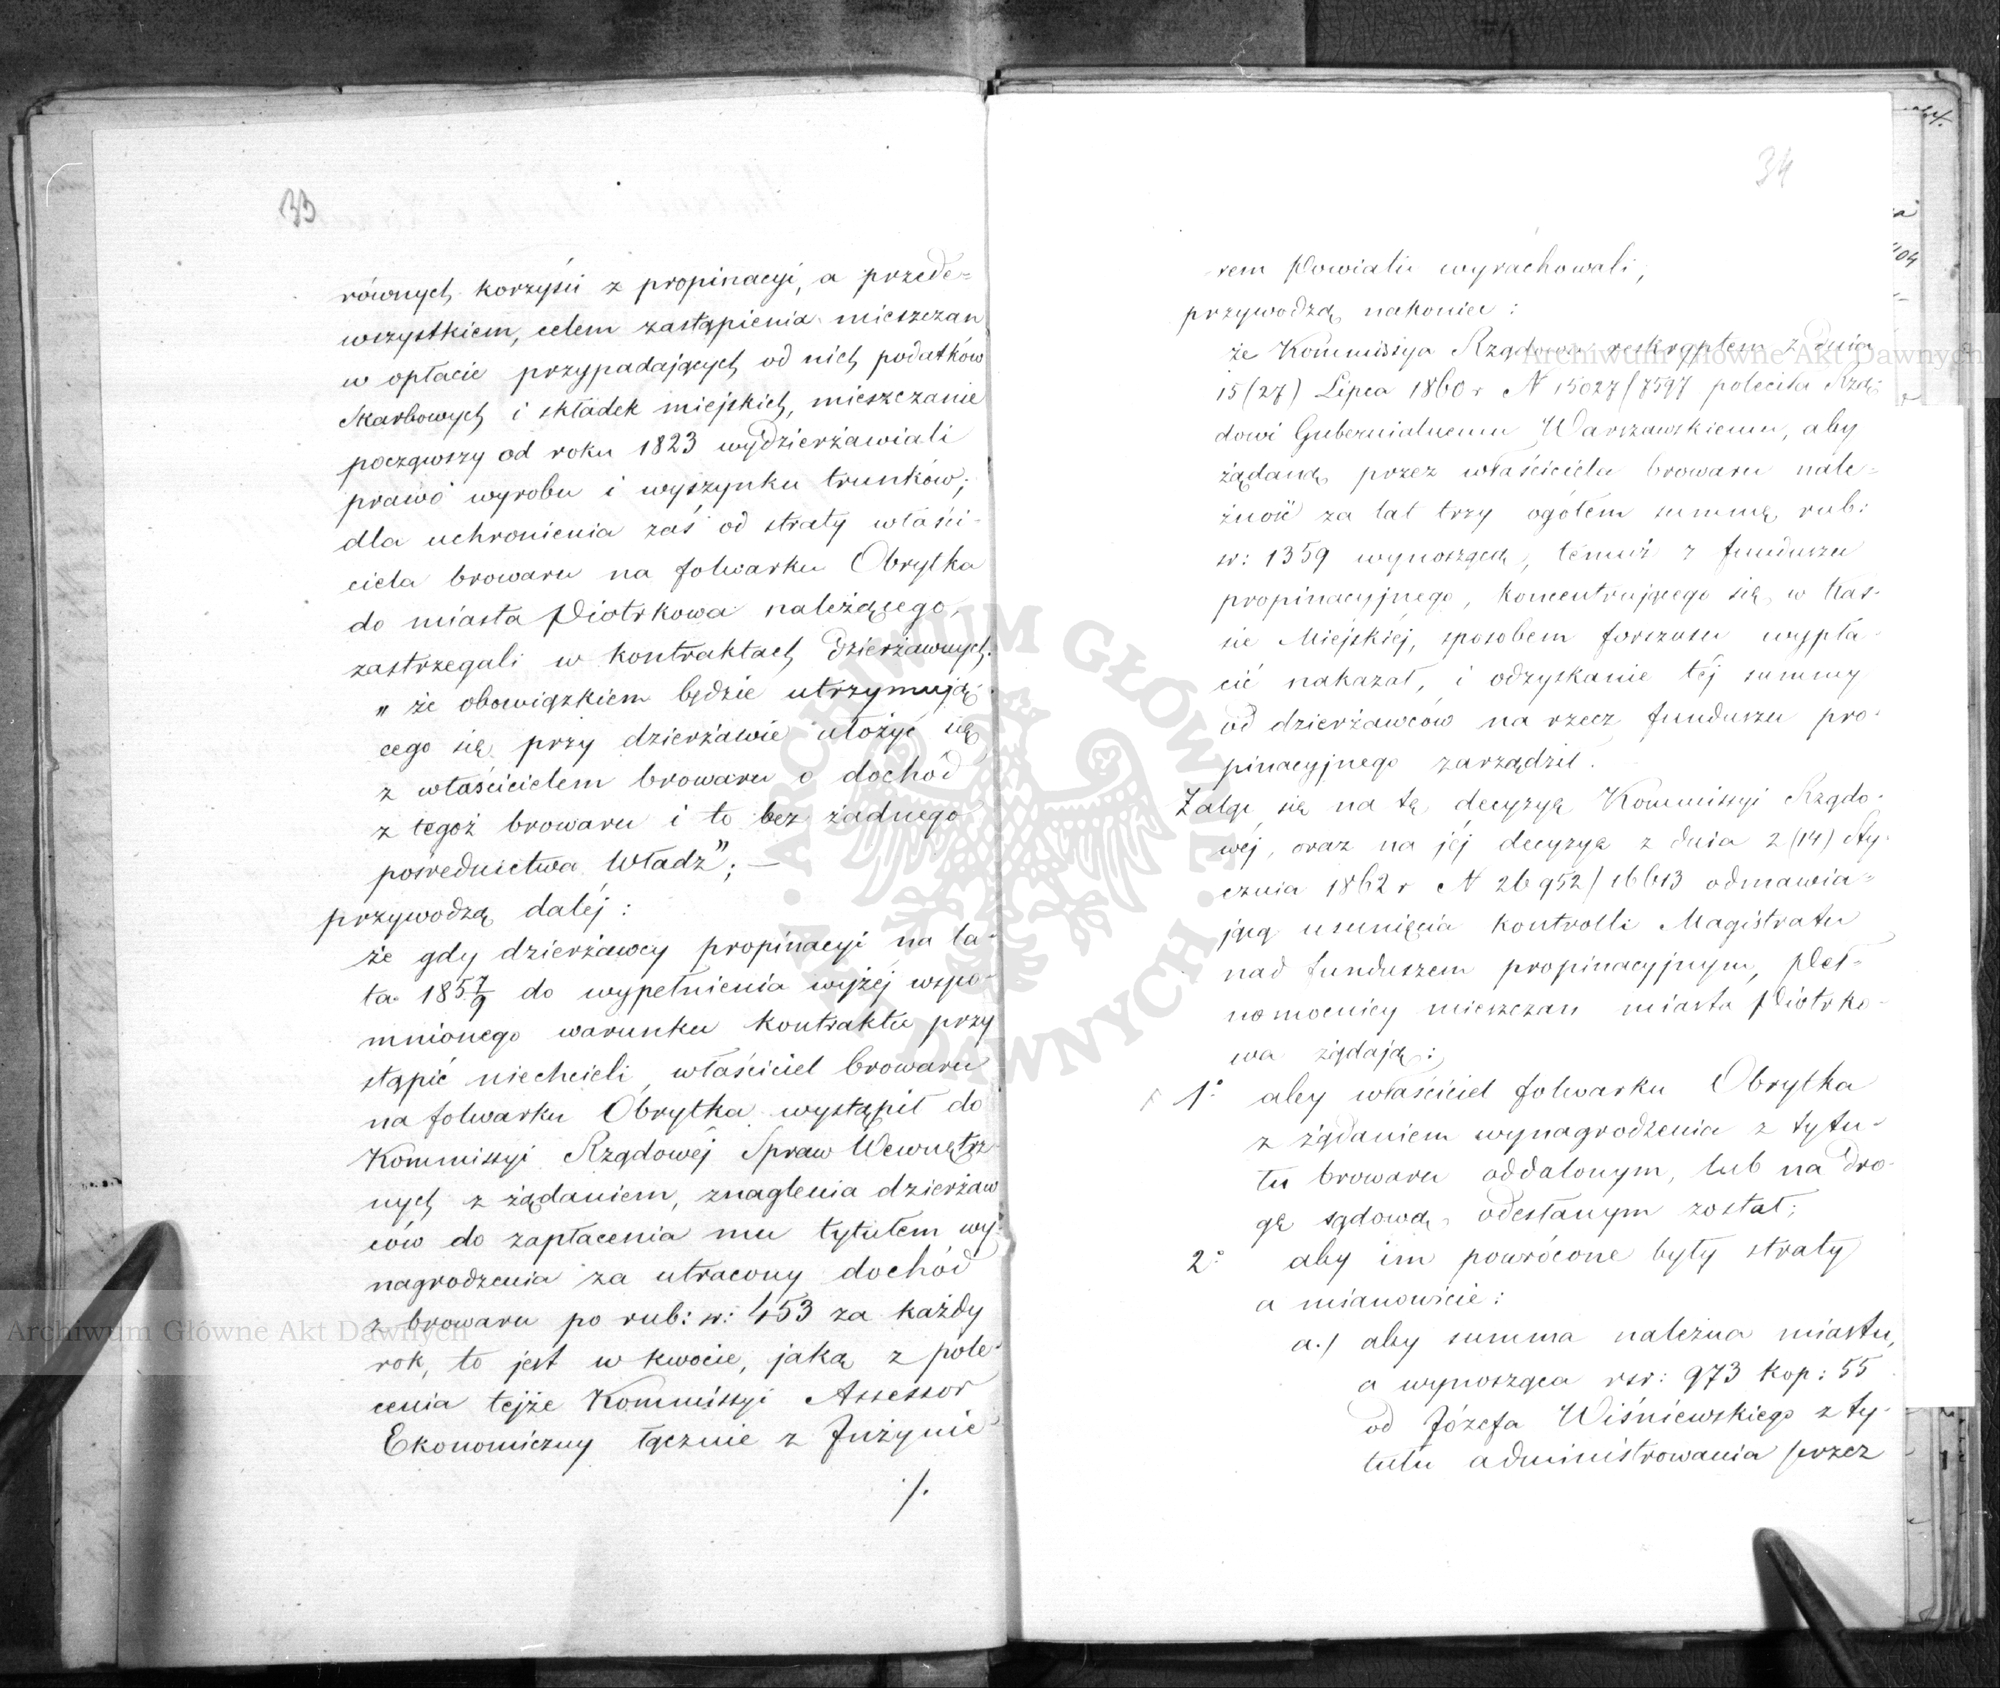 33
równych korzyści z propinacyi, a przede-
wszystkiem, celem zastąpienia mieszczan
w opłacie przypadających od nich podatków
Skarbowych i składek miejskich, mieszczanie
począwszy od roku 1823 wydzierżawiali
prawo wyrobu i wyszynku trunków;
dla uchronienia zaś od straty właści-
ciela browaru na folwarku Obrytka
do miasta Piotrkowa należącego,
zastrzegali w kontraktach dzierżawnych.
„że obowiązkiem będzie utrzymują-
cego się przy dzierżawie ułożyć się
z właścicielem browaru o dochód
z tegoż browaru i to bez żadnego
pośrednictwa Władz”; —
przywodzą daléj:
że gdy dzierżawcy propinacyi na la-
ta 185 7/9 do wypełnienia wyżéj wspo-
mnionego warunku kontraktu przy
stąpić niechcieli, właściciel browaru
na folwarku Obrytka wystąpił do
Kommissyi Rządowéj Spraw Wewnętrz-
nych z żądaniem, znaglenia dzierżaw
ców do zapłacenia mu tytułem wy-
nagrodzenia za utracony dochód
z browaru po rub: sr: 453 za każdy
rok, to jest w kwocie, jaką z pole-
cenia tejże Kommissyi Assessor
Ekonomiczny łącznie z Inżynie-
/.
34
rem Powiatu wyrachowali,
przywodzą nakoniec:
że Kommissya Rządowa reskryptem z dnia
15 (27) Lipca 1860 r N 15027/7597 poleciła Rzą-
dowi Gubernialnemu Warszawskiemu, aby
żądaną przez właściciela browaru nale-
żność za lat trzy ogółem summę rub:
sr: 1359 wynoszącą, temuż z funduszu
propinacyjnego, koncentrującego się w Kas-
sie Miejskiéj, sposobem forszusu wypła-
cić nakazał, i odzyskanie téj summy
od dzierżawców na rzecz funduszu pro-
pinacyjnego zarządził.
Żaląc się na tą decyzyą Kommissyi Rządo-
wéj, oraz na jéj decyzyą z dnia 2 (14) Sty-
cznia 1862 r N 26952/16613 odmawia-
jącą usunięcia kontrolli Magistratu
nad funduszem propinacyjnym, Peł-
nomocnicy mieszczan miasta Piotrko-
wa żądają:
1° aby właściciel folwarku Obrytka
z żądaniem wynagrodzenia z tytu-
łu browaru oddalonym, lub na dro-
gę sądową odesłanym został;
2° aby im powrócone były straty
a mianowicie:
a./ aby summa należna miastu,
a wynosząca rsr: 973 kop: 55
od Józefa Wiśniewskiego z ty-
tułu administrowania przez
Archiwum Główne Akt Dawnych
Archiwum Główne Akt Dawnych
ARCHIWUM GŁÓWNE AKT DAWNYCH